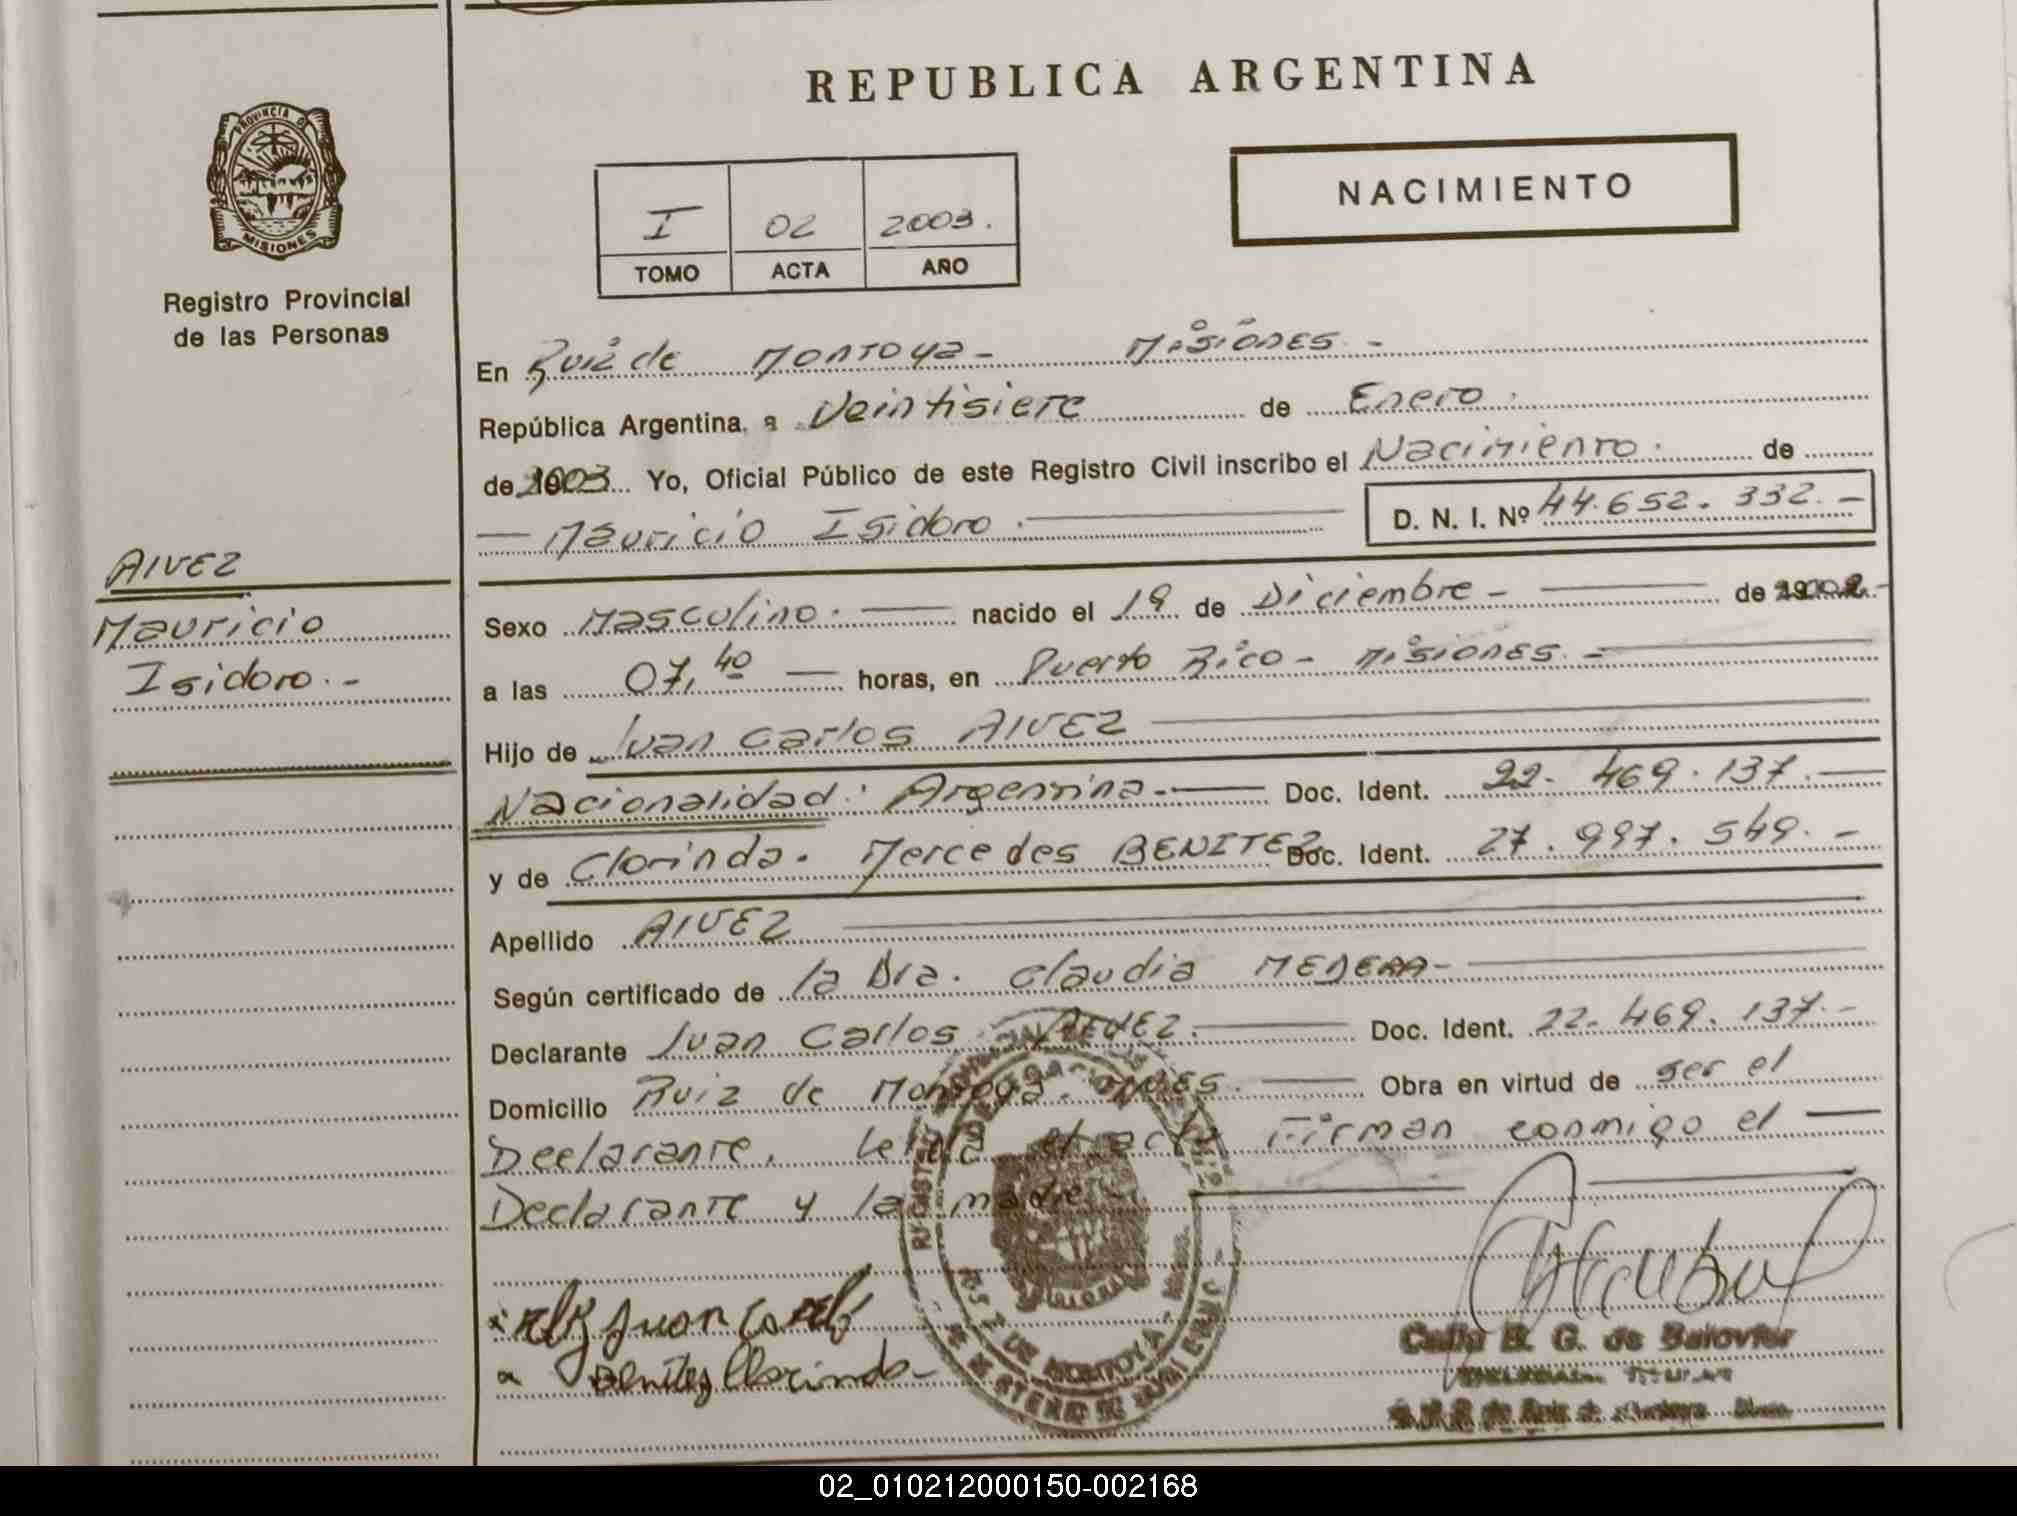 REPUBLICA ARGENTINA
PROVINCIA DE
MISIONES
Registro Provincial
de las Personas
NACIMIENTO
I 02 2003.
TOMO ACTA AÑO
En Ruiz de Montoya - Misiones -
República Argentina, a Veintisiete de Enero.
de 2003 Yo, Oficial Público de este Registro Civil inscribo el Nacimiento. de
— Mauricio Isidoro. — D. N. I. Nº 44.652.332. -
ALVEZ
Mauricio
Isidoro. -
Sexo Masculino. — nacido el 19 de Diciembre - — de 2002.-
a las 07,40 — horas, en Puerto Rico - Misiones. -
Hijo de Juan Carlos ALVEZ
Nacionalidad: Argentina. — Doc. Ident. 22. 469. 137. —
y de Clorinda. Mercedes BENITEZ Doc. Ident. 27. 997. 549. -
Apellido ALVEZ
Según certificado de la Dra. Claudia
Declarante Juan Carlos ALVEZ. — Doc. Ident. 22. 469. 137. -
Domicilio Ruiz de Montoya. Mnes. — Obra en virtud de ser el
Declarante. Leída el acta Firman conmigo el —
Declarante y la madre.
Juan
Benitez Clorinda
DE MONTOYA
B. G. de
02_010212000150-002168